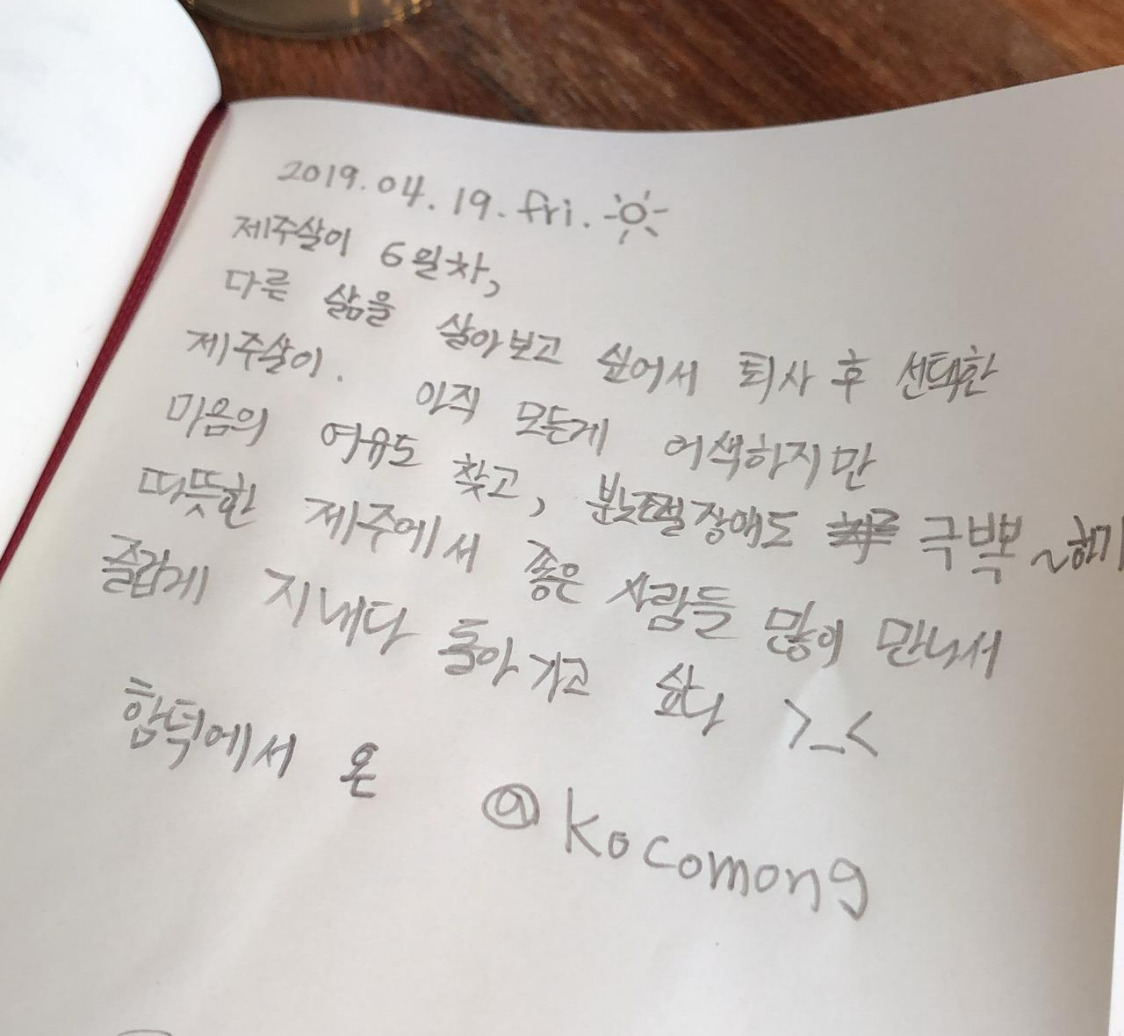 2019.04.19.fri.
제주살이 6일차,
다른 삶을 살아보고 싶어서 퇴사 후 선택한
제주살이. 아직 모든게 어색하지만
마음의 여유도 찾고, 분노조절장애도 극뽁~하기
따뜻한 제주에서 좋은 사람들 많이 만나서
즐겁게 지내다 돌아가고 싶다 >_<
함덕에서 온 @kocomong